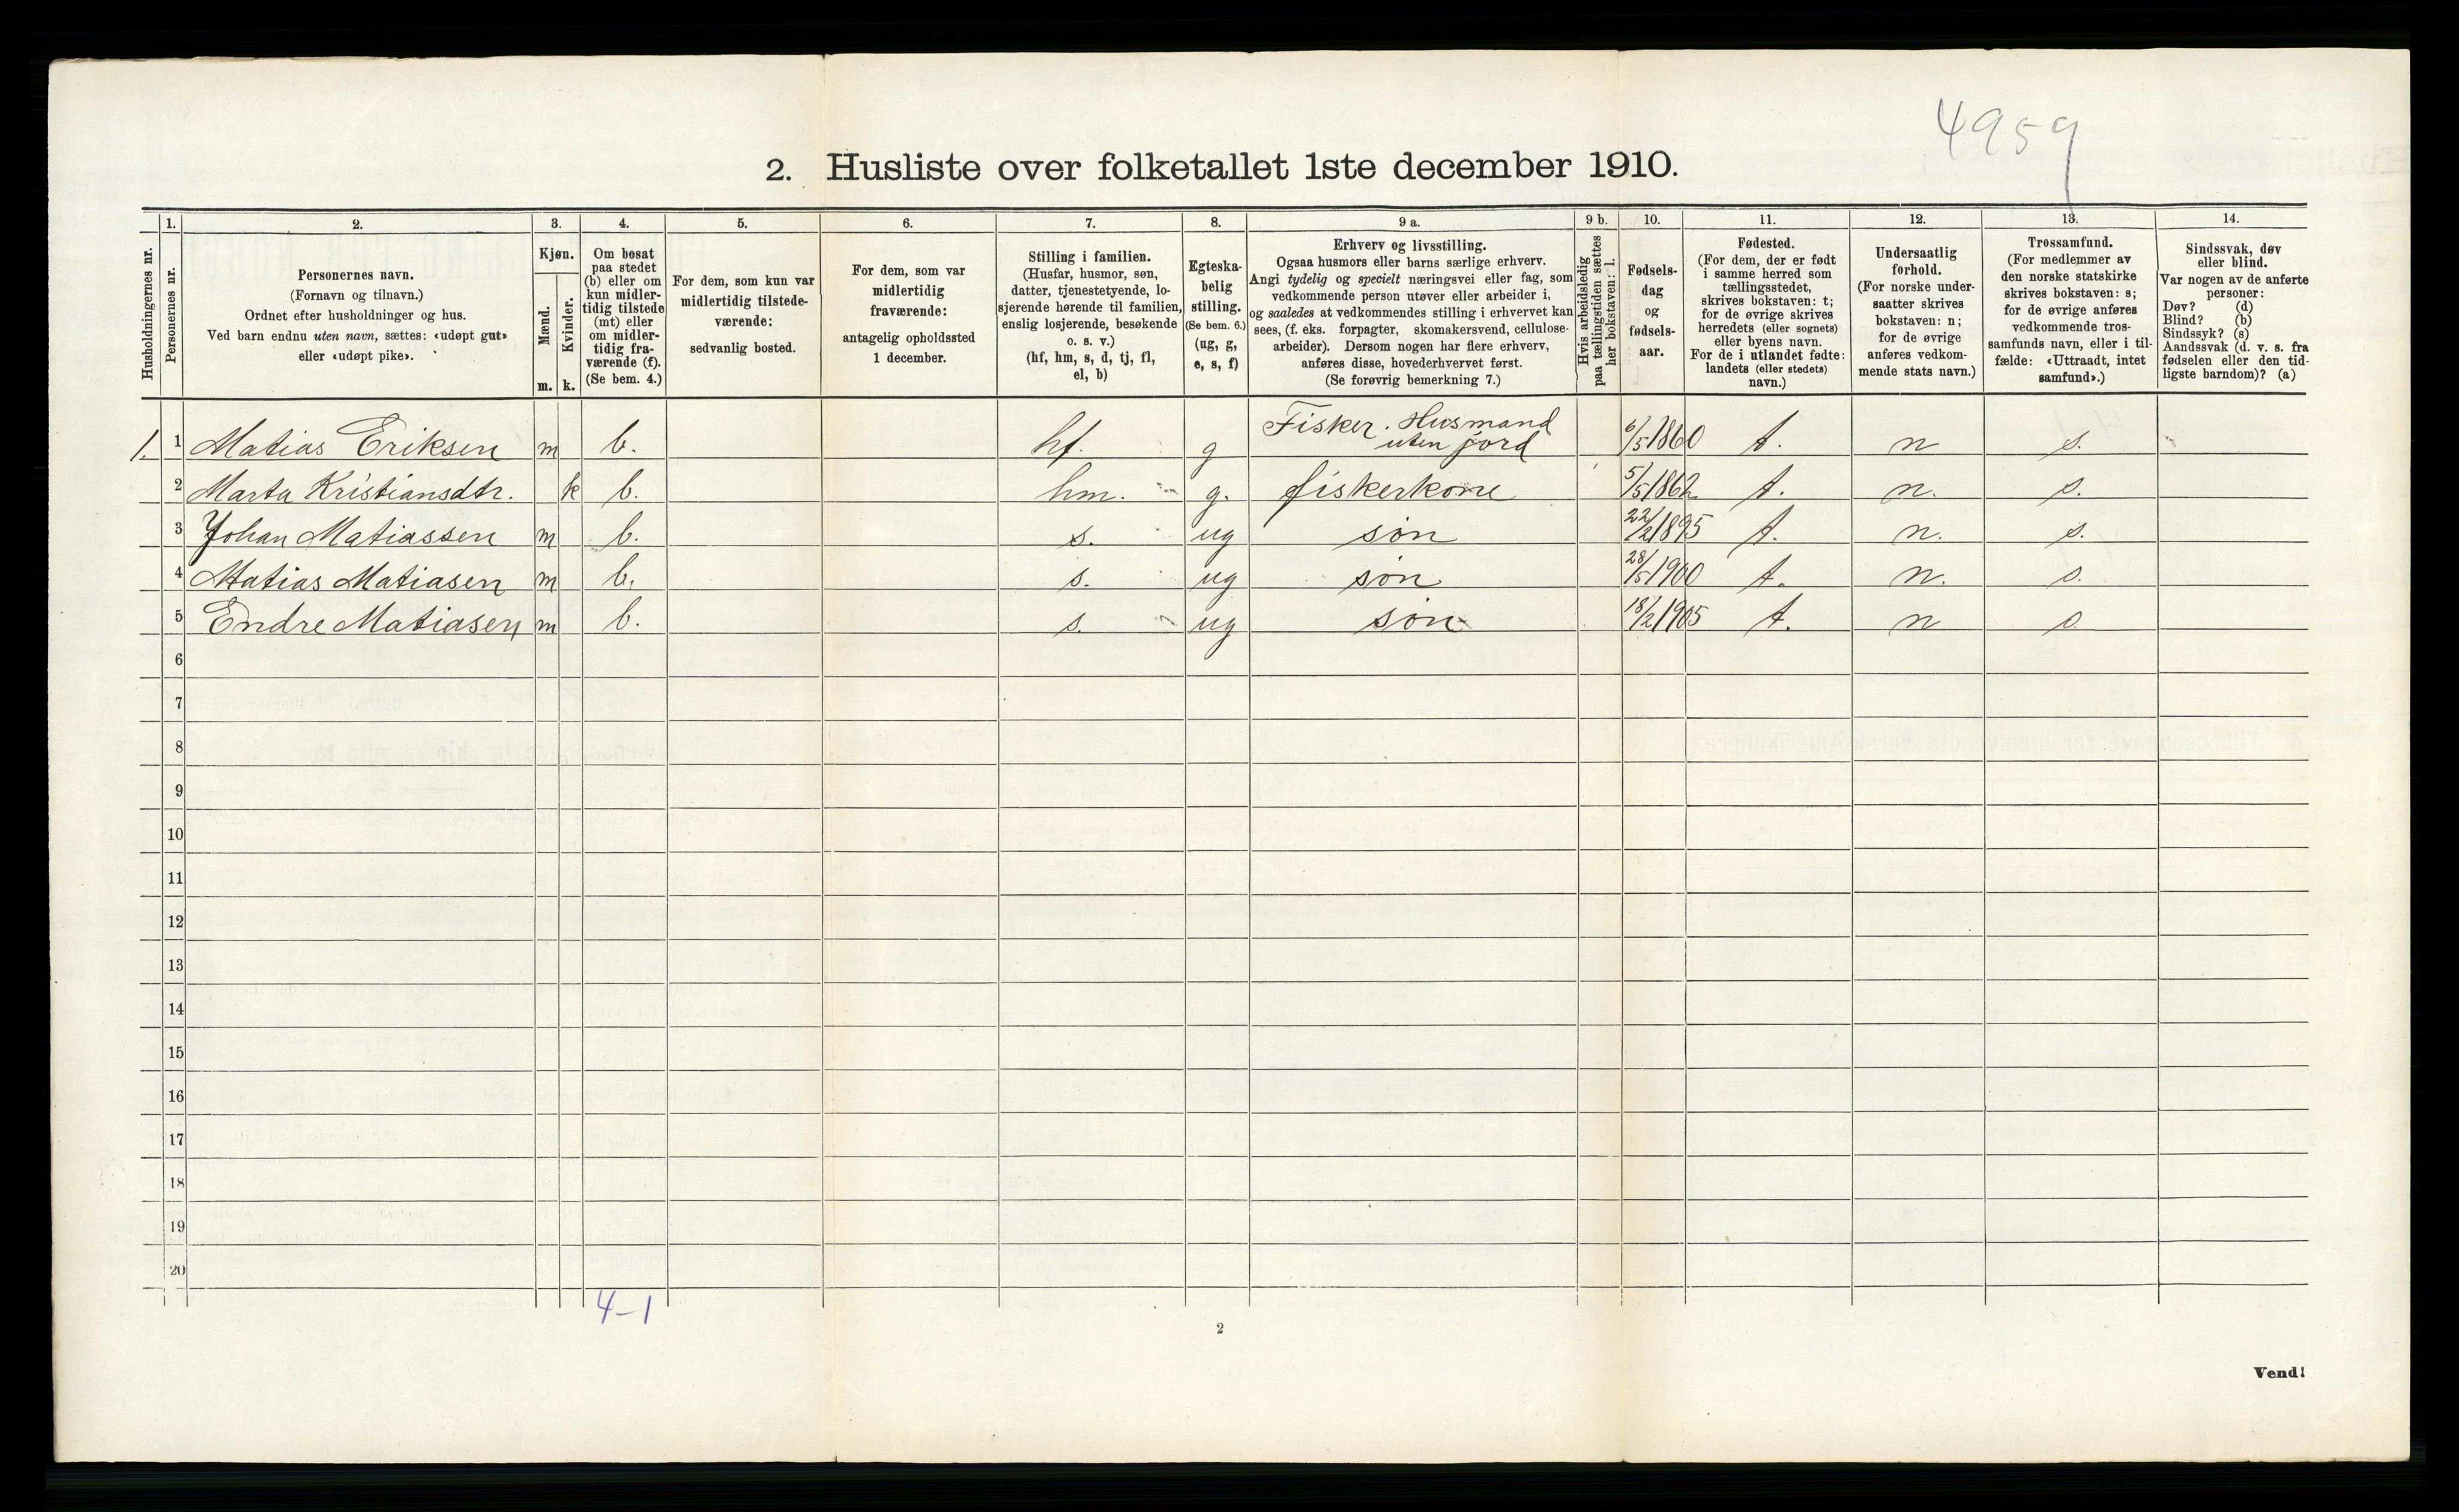 4959
2. Husliste over folketallet 1ste december 1910.
Husholdningernes nr.
1.
Personernes nr.
2.
Personernes navn.
(Fornavn og tilnavn.)
Ordnet efter husholdninger og hus.
Ved barn endnu uten navn, sættes: «udøpt gut»
eller «udøpt pike».
3.
Kjøn.
Mænd.
Kvinder.
m. k.
4.
Om bosat
paa stedet
(b) eller om
kun midler-
tidig tilstede
(mt) eller
om midler-
tidig fra-
værende (f).
(Se bem. 4.)
5.
For dem, som kun var
midlertidig tilstede-
værende:
sedvanlig bosted.
6.
For dem, som var
midlertidig
fraværende:
antagelig opholdssted
1 december.
7.
Stilling i familien.
(Husfar, husmor, søn,
datter, tjenestetyende, lo-
sjerende hørende til familien,
enslig losjerende, besøkende
o. s. v.)
(hf, hm, s, d, tj, fl,
el, b)
8.
Egteska-
belig
stilling.
(Se bem. 6.)
(ug, g,
e, s, f)
9 a.
Erhverv og livsstilling.
Ogsaa husmors eller barns særlige erhverv.
Angi tydelig og specielt næringsvei eller fag, som
vedkommende person utøver eller arbeider i,
og saaledes at vedkommendes stilling i erhvervet kan
sees, (f. eks. forpagter, skomakersvend, cellulose-
arbeider). Dersom nogen har flere erhverv,
anføres disse, hovederhvervet først.
(Se forøvrig bemerkning 7.)
9 b.
Hvis arbeidsledig
paa tællingstiden sættes
her bokstaven: l.
10.
Fødsels-
dag
og
fødsels-
aar.
11.
Fødested.
(For dem, der er født
i samme herred som
tællingsstedet,
skrives bokstaven: t;
for de øvrige skrives
herredets (eller sognets)
eller byens navn.
For de i utlandet fødte:
landets (eller stedets)
navn.)
12.
Undersaatlig
forhold.
(For norske under-
saatter skrives
bokstaven: n;
for de øvrige
anføres vedkom-
mende stats navn.)
13.
Trossamfund.
(For medlemmer av
den norske statskirke
skrives bokstaven: s;
for de øvrige anføres
vedkommende tros-
samfunds navn, eller i til-
fælde: «Uttraadt, intet
samfund».)
14.
Sindssvak, døv
eller blind.
Var nogen av de anførte
personer:
Døv? (d)
Blind? (b)
Sindssyk? (s)
Aandssvak (d. v. s. fra
fødselen eller den tid-
ligste barndom)? (a)
1. 1 Matias Eriksen m b. hf. g Fisker. Husmand uten jord 6/5 1860 t. n s.
2 Marta Kristiansdtr. k b. hm. g. fiskerkone 5/5 1862 t. n. s.
3 Johan Matiassen m b. s. ug søn 22/2 1895 t. n. s.
4 Matias Matiasen m b. s. ug søn 28/5 1900 t. n. s.
5 Endre Matiasen m b. s. ug søn 18/2 1905 t. n s.
6
7
8
9
10
11
12
13
14
15
16
17
18
19
20
4-1
2
Vend!